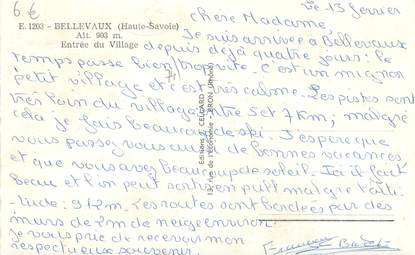 6€
E. 1203 - BELLEVAUX (Haute-Savoie)
Alt. 903 m.
Entrée du Village
le 13 fevrier
chere Madame,
Je suis arrivée à Bellevaux
depuis déjà quatre jours : le
temps passe bien trop vite. C'est un mignon
petit village et c'est très calme. Les pistes sont
très loin du village entre 5 et 7 Km; malgré
cela je fais beaucoup de ski. J'espere que
vous passez vous aussi de bonnes vacances
et que vous avez beaucoup de soleil. Ici il fait
beau et l'on peut sortir en pull malgré l'alti-
tude: 912m. Les routes sont bordées par des
murs de 2m de neige environ.
Je vous prie de recevoir mon
respectueux souvenir.
Editions CELLARD
13, rue de l'Economie - BRON (Rhône)